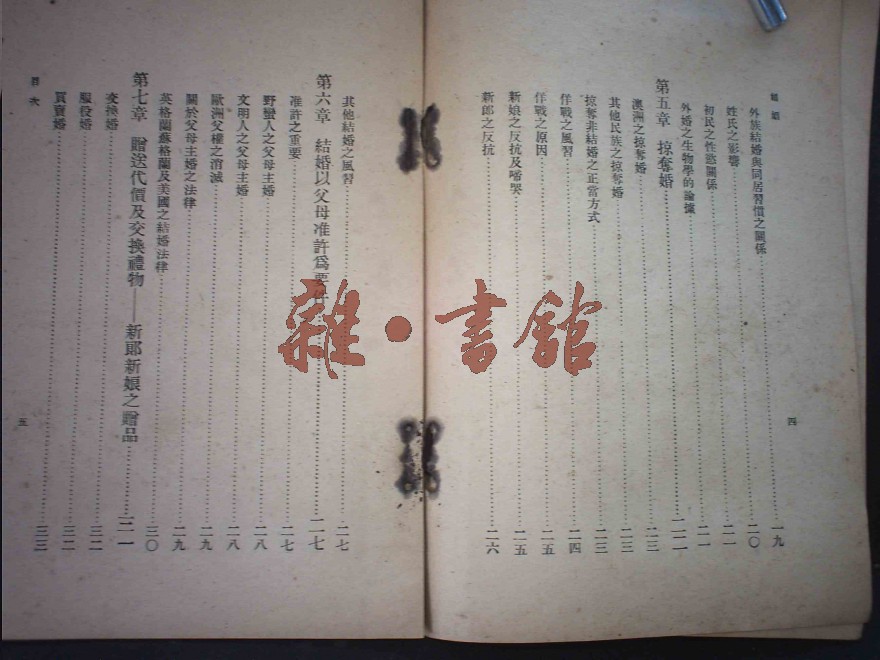 婚姻
外族結婚與同居習慣之關係……一九
姓氏之影響……二〇
初民之性慾關係……二一
外婚之生物學的論據……二一
第五章　掠奪婚……二二
澳洲之掠奪婚……二三
其他民族之掠奪婚……二三
掠奪非結婚之正當方式……二三
佯戰之風習……二四
佯戰之原因……二五
新娘之反抗及啼哭……二五
新郎之反抗……二六
四
其他結婚之風習……二七
第六章　結婚以父母准許爲要件……二七
准許之重要……二七
野蠻人之父母主婚……二八
文明人之父母主婚……二八
歐洲父權之消滅……二九
關於父母主婚之法律……二九
英格蘭蘇格蘭及美國之結婚法律……三〇
第七章　贈送代價及交換禮物——新郎新娘之贈品……三一
交換婚……三一
服役婚……三二
買賣婚……三三
目次
五
雜·書館